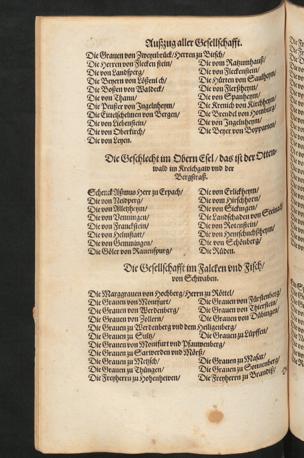 Außzug aller Gesellschafft.
Die Grauen von Zweyenbrück/ Herren zu Bitsch/
Die Herren von Flecken stein/ Die vom Ratzumhauß/
Die von Landsperg/ Die von Fleckenstein/
Die Beyern von Die Hürten von
Die Boßen von Waldeck/ Die von Flerßheym/
Die von Thann/ Die von Spanheym/
Die von Ingelnheym/ Die von Kirchheym/
Die von Bergen/ Die von Homburg/
Die von Liebenstein/ Die von Ingelnheym/
Die von Oberkirch/ Die Beyer von Boppartten/
Die von Leyen.
Die Geschlecht im Obern Esel/ das ist der Otten-
wald im Kreichgaw vnd der
Bergstraß.
Schenck Aßmus Herr zu Erpach/ Die von Erlickheym/
Die von Neidperg/ Die vom Hirschhorn/
Die von Alletzheym/ Die von Sickingen/
Die von Venningen/ Die Landschaden von
Die von Franckstein/ Die von Rotenstein/
Die von Helmstatt/ Die von Hentschuchßheym/
Die von Gemmingen/ Die von Schönberg/
Die Göler von Rauenspurg/ Die Rüden.
Die Gesellschafft im Falcken vnd Fisch/
von Schwaben.
Die Marggrauen von Hochberg/ Herren zu Röttel/
Die Grauen von Montfurt/ Die Grauen von Fürstenberg/
Die Grauen von Werdenberg/ Die Grauen von Thierstein/
Die Grauen von Zollern/ Die Grauen von
Die Grauen zu Werdenberg vnd dem Heiligenberg/
Die Grauen zu Sultz/ Die Grauen zu Lüpffen/
Die Grauen von Montfurt vnd Pfauwenberg/
Die Grauen zu Sarwerden vnd Mörß/
Die Grauen zu Metsch/ Die Grauen zu
Die Grauen zu Thüngen/ Die Grauen zu Sonnenberg/
Die Freyherrn zu Hohenheven/ Die Freyherrn zu Brandiß/